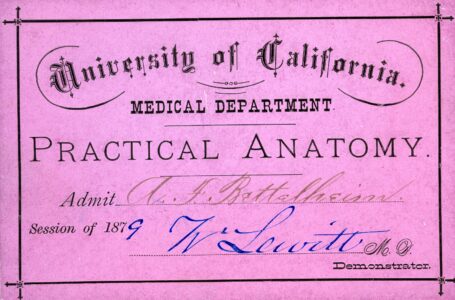 University of California.
MEDICAL DEPARTMENT.
PRACTICAL ANATOMY.
Admit A. F. Bettelheim.
Session of 1879 Wm Lewitt M. D.
Demonstrator.